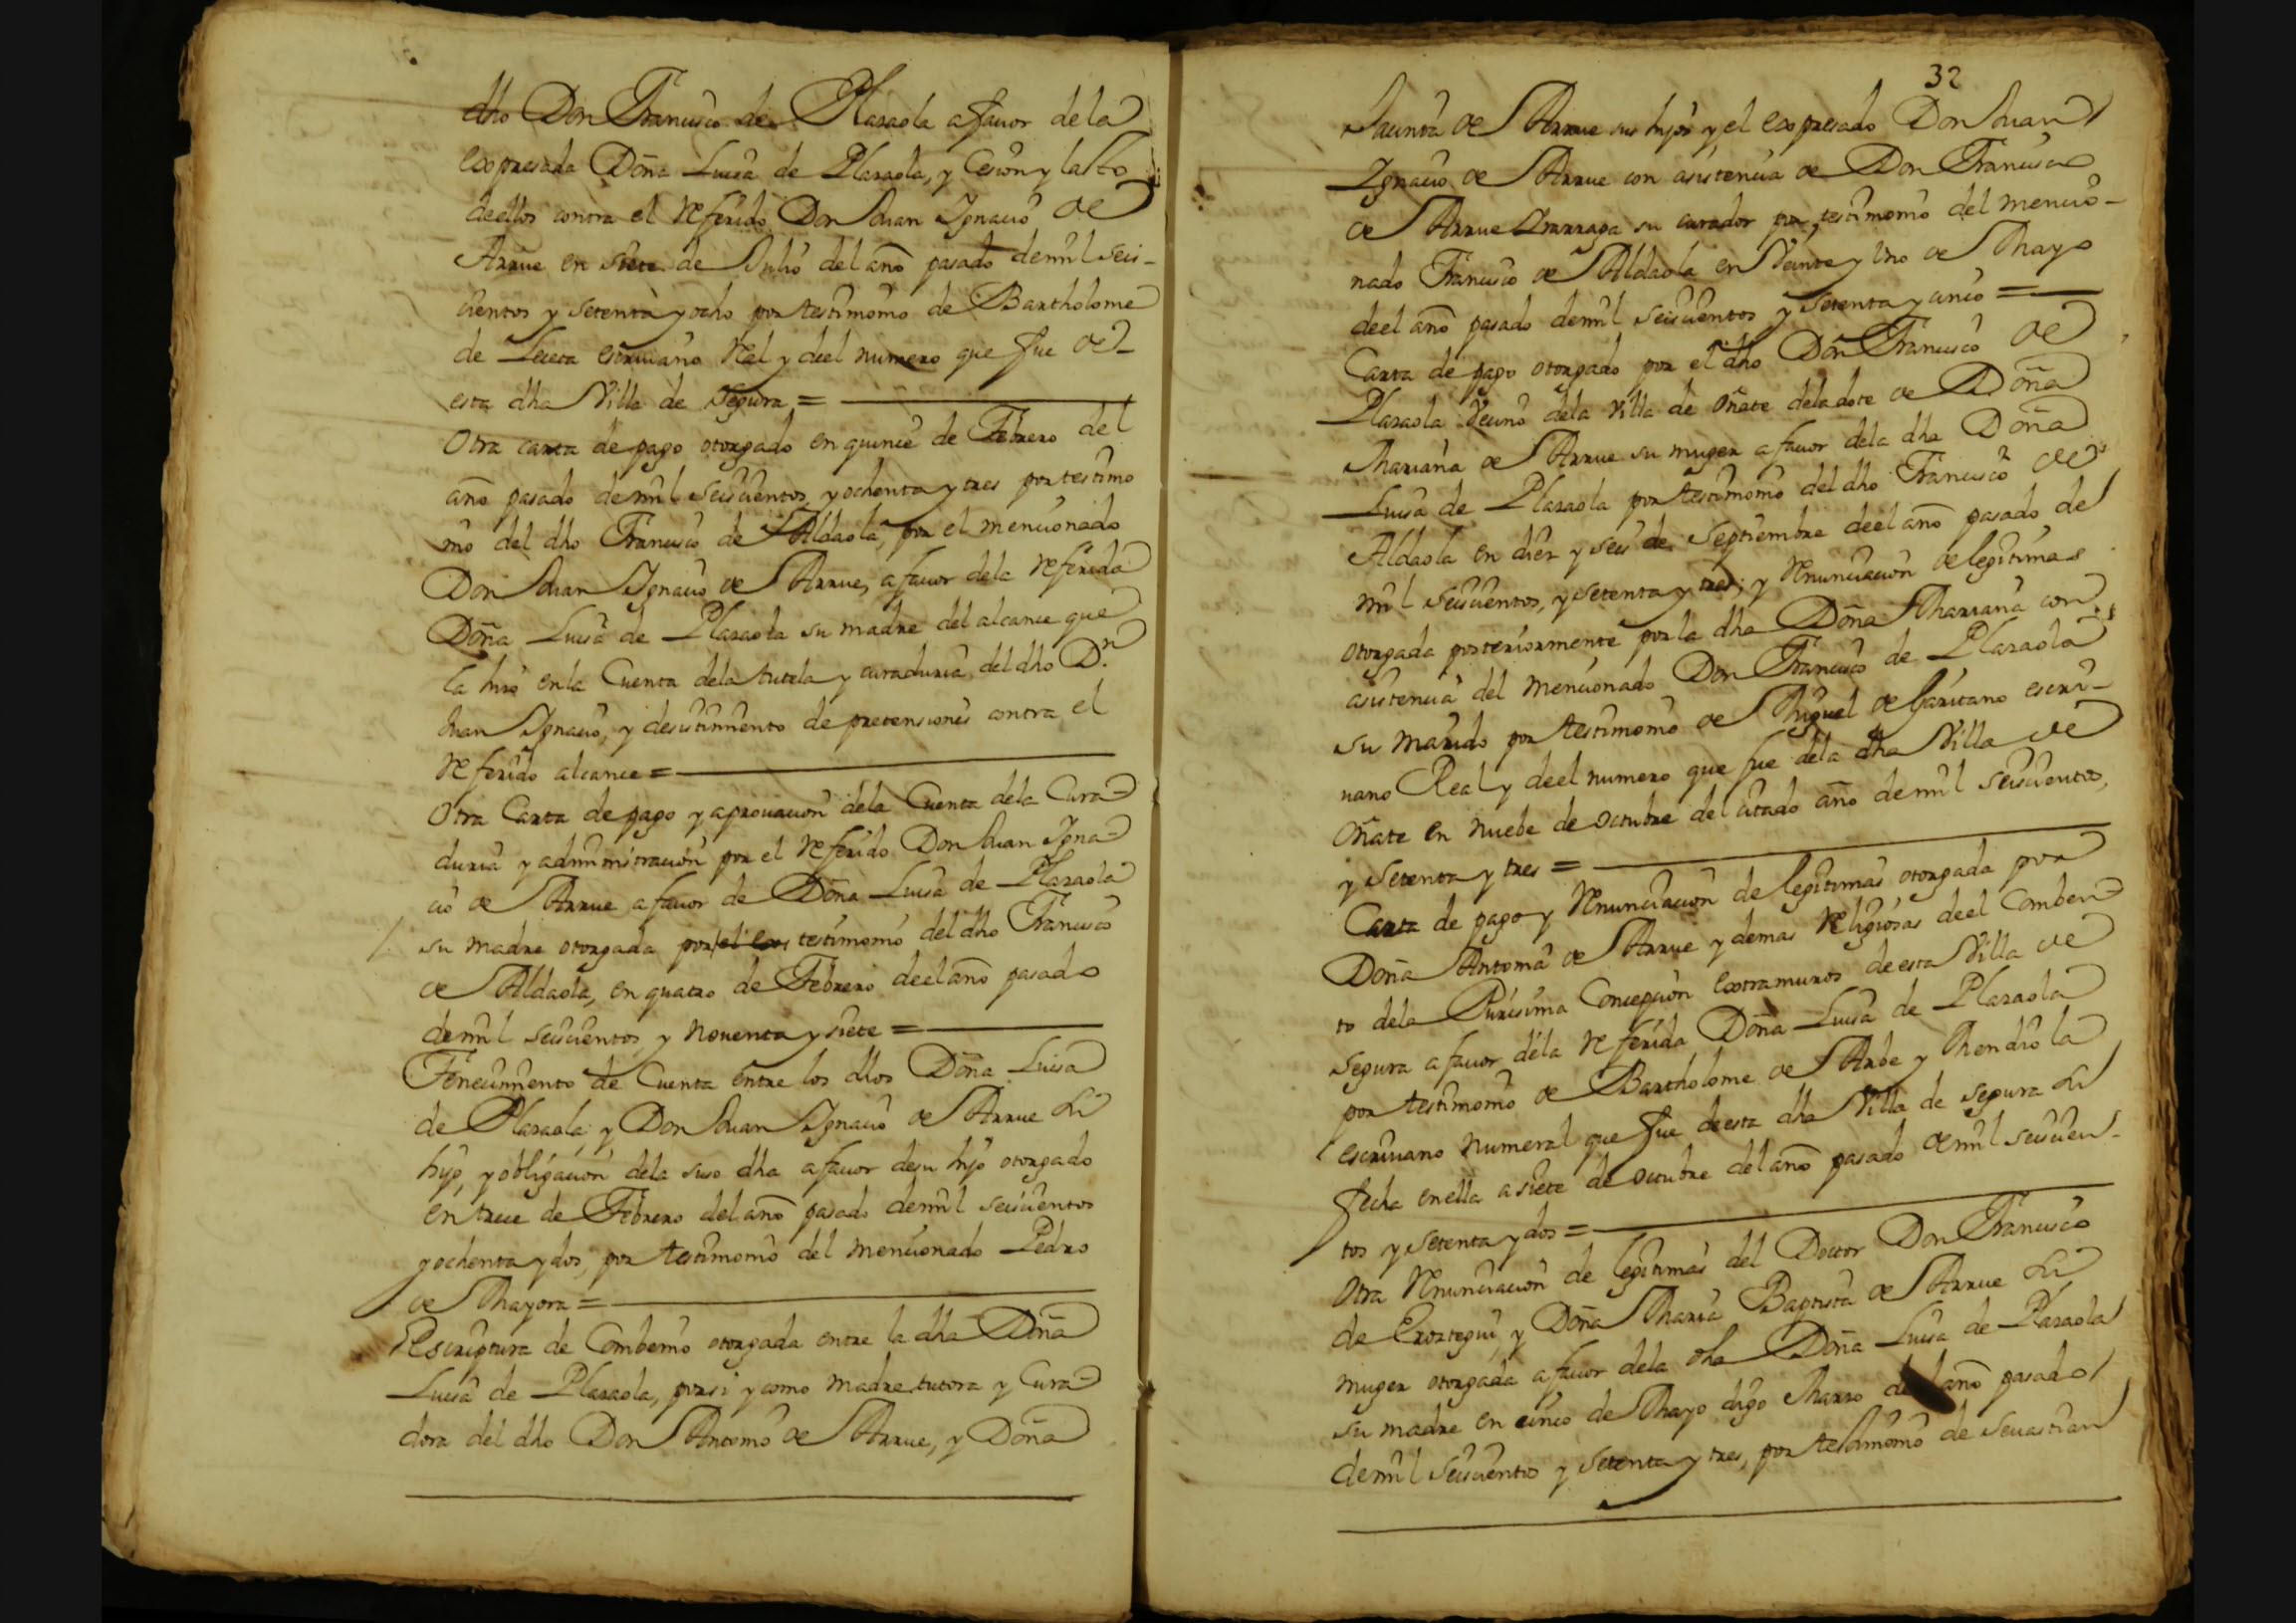 dho Don Franco. de Plazaola a fauor dela
expresada Doña Luisa de Plazaola, y Cesion y lasto
deellos contra el referido Don Juan Ignacio de
Arrue en siete de Julio del año pasado demil seis-
cientos y setenta y ocho por testimonio de Bartholome
de Leceta escriuano Real y deel numero que fue de
esta dha Villa de Segura =
Otra carta de pago otorgado en quince de Febrero del
año pasado demil seiscientos y ochenta y tres por testimo
nio del dho Francisco de Aldaola, por el mencionado
Don Juan Ignacio de Arrue, a fauor dela referida
Doña Luisa de Plazaola su madre del alcance que
la hizo enla Cuenta dela tutela y curaduria del dho Dn.
Juan Ignacio, y desistimiento de pretensiones contra el
referido alcance =
Otra Carta de pago y aprouacion dela Cuenta dela Cura-
duria y administracion por el referido Don Juan Igna-
cio de Arrue a fauor de Doña Luisa de Plazaola
su madre otorgada por testimonio del dho Francisco
de Aldaola, en quatro de Febrero deel año pasado
demil seiscientos y nouenta y siete =
Fenecimiento de Cuenta entre los dhos Doña Luisa
de Plazaola y Don Juan Ignacio de Arrue su
hijo, y obligacion dela suso dha a fauor desu hijo otorgado
en trece de Febrero del año pasado demil seiscientos
y ochenta y dos, por testimonio del mencionado Pedro
de Mayora =
Escriptura de Combenio otorgada entre la dha Doña
Luisa de Plazaola, porsi y como madre tutora y Cura-
dora del dho Don Antonio de Arrue, y Doña
32
Jacinta de Arrue sus hijos y el expresado Don Juan
Ignacio de Arrue con asistencia de Don Francisco
de Arrue Irarraga su curador por testimonio del mencio-
nado Francisco de Aldaola en Veinte y Uno de Mayo
deel año pasado demil seiscientos y setenta y cinco =
Carta de pago otorgado por el dho Don Francisco de
Plazaola Vecino dela Villa de Oñate deladote de Doña
Mariana de Arrue su muger a fauor dela dha Doña
Luisa de Plazaola por testimonio del dho Francisco de
Aldaola en diez y seis de Septiembre deel año pasado de
mil seiscientos, y setenta y tres; y renunciacion de legitimas
otorgada posteriormente por la dha Doña Mariana con
asistencia del mencionado Don Francisco de Plazaola
su marido por testimonio de Miguel de Garitano escri-
uano Real y deel numero que fue dela dha Villa de
Oñate en nuebe de octubre del citado año de mil seiscientos,
y setenta y tres =
Carta de pago y renunciacion de legitimas otorgada por
Doña Antonia de Arrue y demas religiosas deel Comben-
to dela Purisima Concepcion extramuros deesta Villa de
Segura a fauor dela referida Doña Luisa de Plazaola
por testimonio de Bartholome de Arbe y Mendiola
escriuano numeral que fue deesta dha Villa de Segura su
fecha enella a siete de octubre del año pasado demil seiscien-
tos y setenta y dos =
Otra renunciacion de legitimas del Doctor Don Francisco
de Eroztegui, y Doña Maria Baptista de Arrue su
muger otorgada a fauor dela dha Doña Luisa de Plazaola
su madre en cinco de Mayo digo Marzo del año pasado
demil seiscientos y setenta y tres, por testimonio de Seuastian